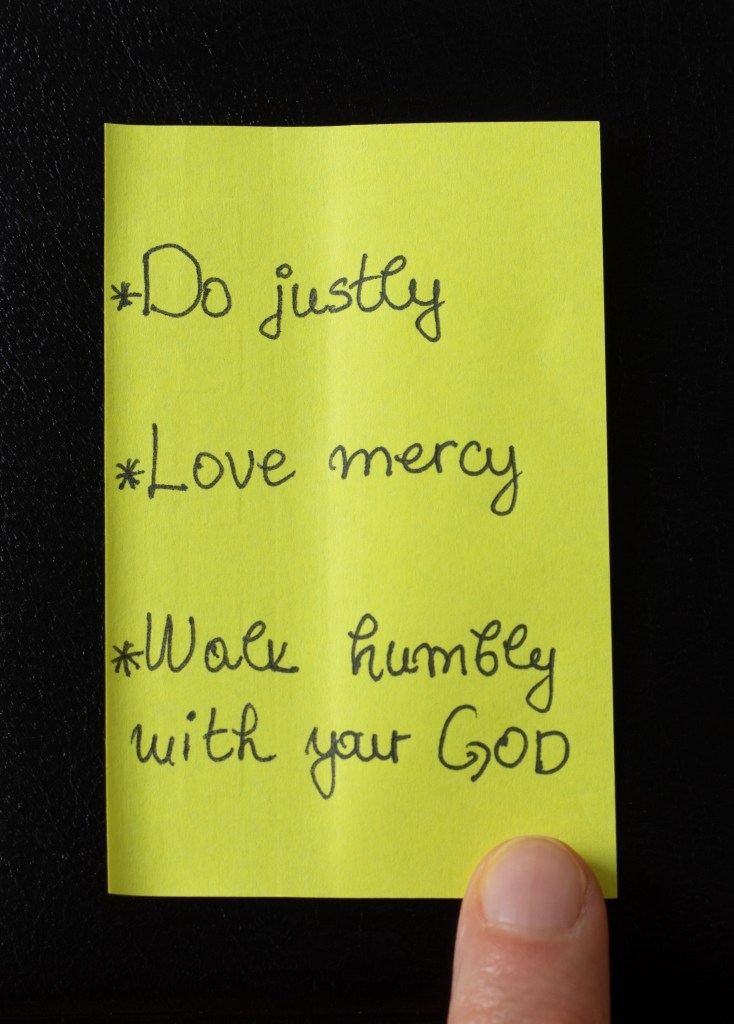 *Do justly
*Love mercy
*Walk humbly
with your GOD